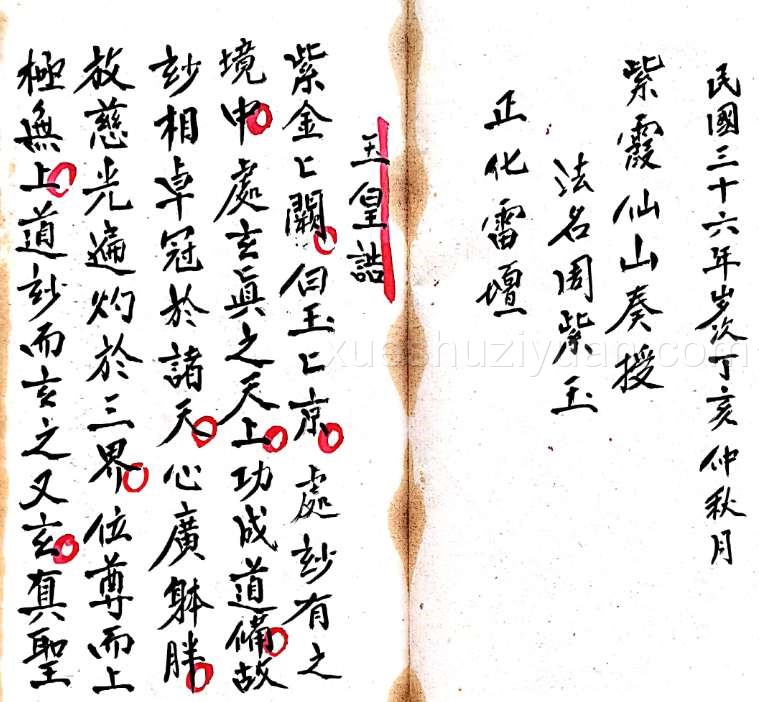 民國三十六年岁次丁亥仲秋月
紫霞仙山奏授
法名周紫玉
正化雷壇
玉皇誥
紫金匕闕白玉匕京處玅有之
境中處玄眞之天上功成道備故
玅相卓冠於諸天心廣躰胖
放慈光遍灼於三界位尊而上
極無上道玅而玄之又玄真聖
xueshuziyuan.com